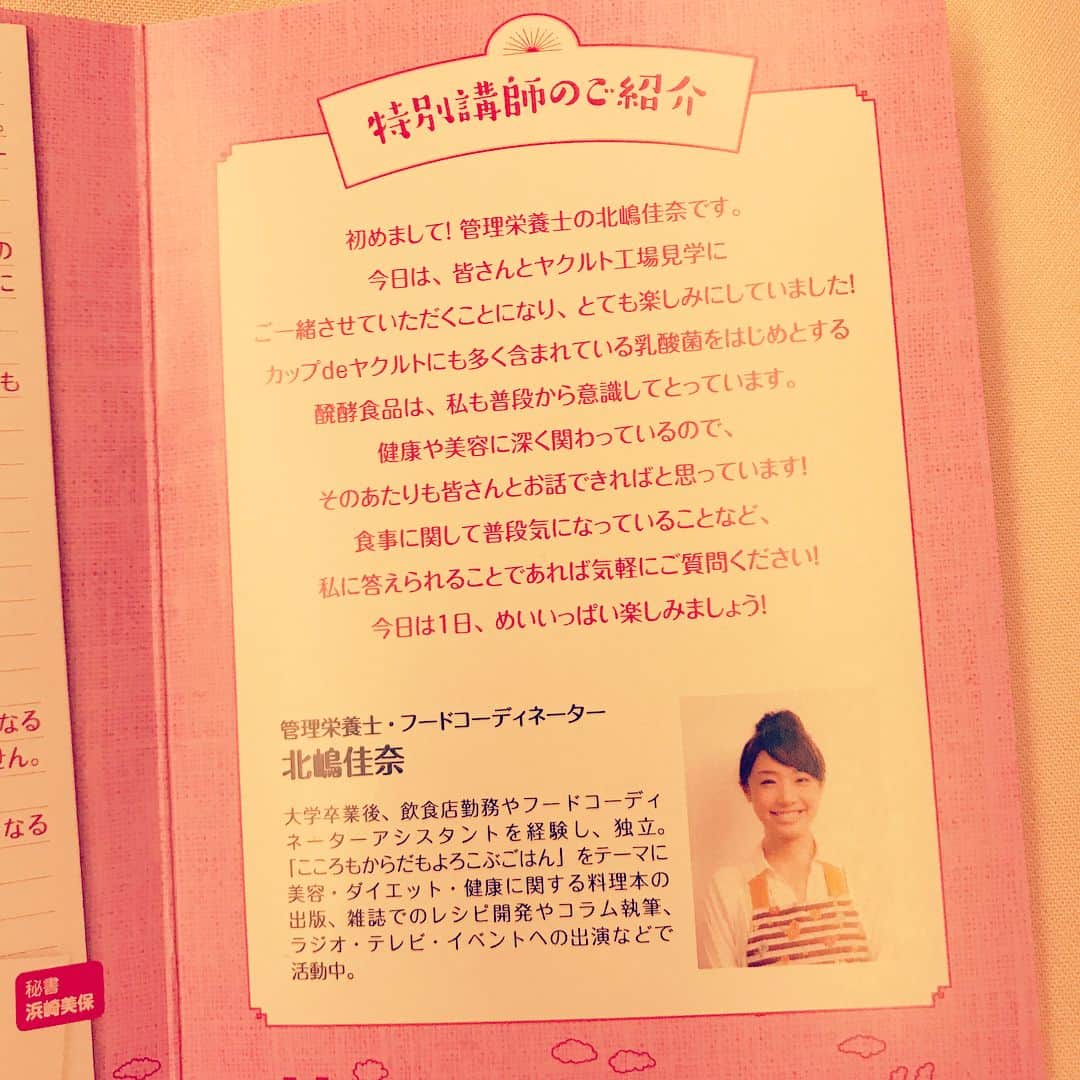 特別講師のご紹介
初めまして!管理栄養士の北嶋佳奈です。
今日は、皆さんとヤクルト工場見学に
ご一緒させていただくことになり、とても楽しみにしていました!
カップdeヤクルトにも多く含まれている乳酸菌をはじめとする
醗酵食品は、私も普段から意識してとっています。
健康や美容に深く関わっているので、
そのあたりも皆さんとお話できればと思っています!
食事に関して普段気になっていることなど、
私に答えられることであれば気軽にご質問ください!
今日は1日、めいいっぱい楽しみましょう!
管理栄養士・フードコーディネーター
北嶋佳奈
大学卒業後、飲食店勤務やフードコーディ
ネーターアシスタントを経験し、独立。
「こころもからだもよろこぶごはん」をテーマに
美容・ダイエット・健康に関する料理本の
出版、雑誌でのレシピ開発やコラム執筆、
ラジオ・テレビ・イベントへの出演などで
活動中。
の
に
も
なる
せん。
なる
秘書
浜崎美保